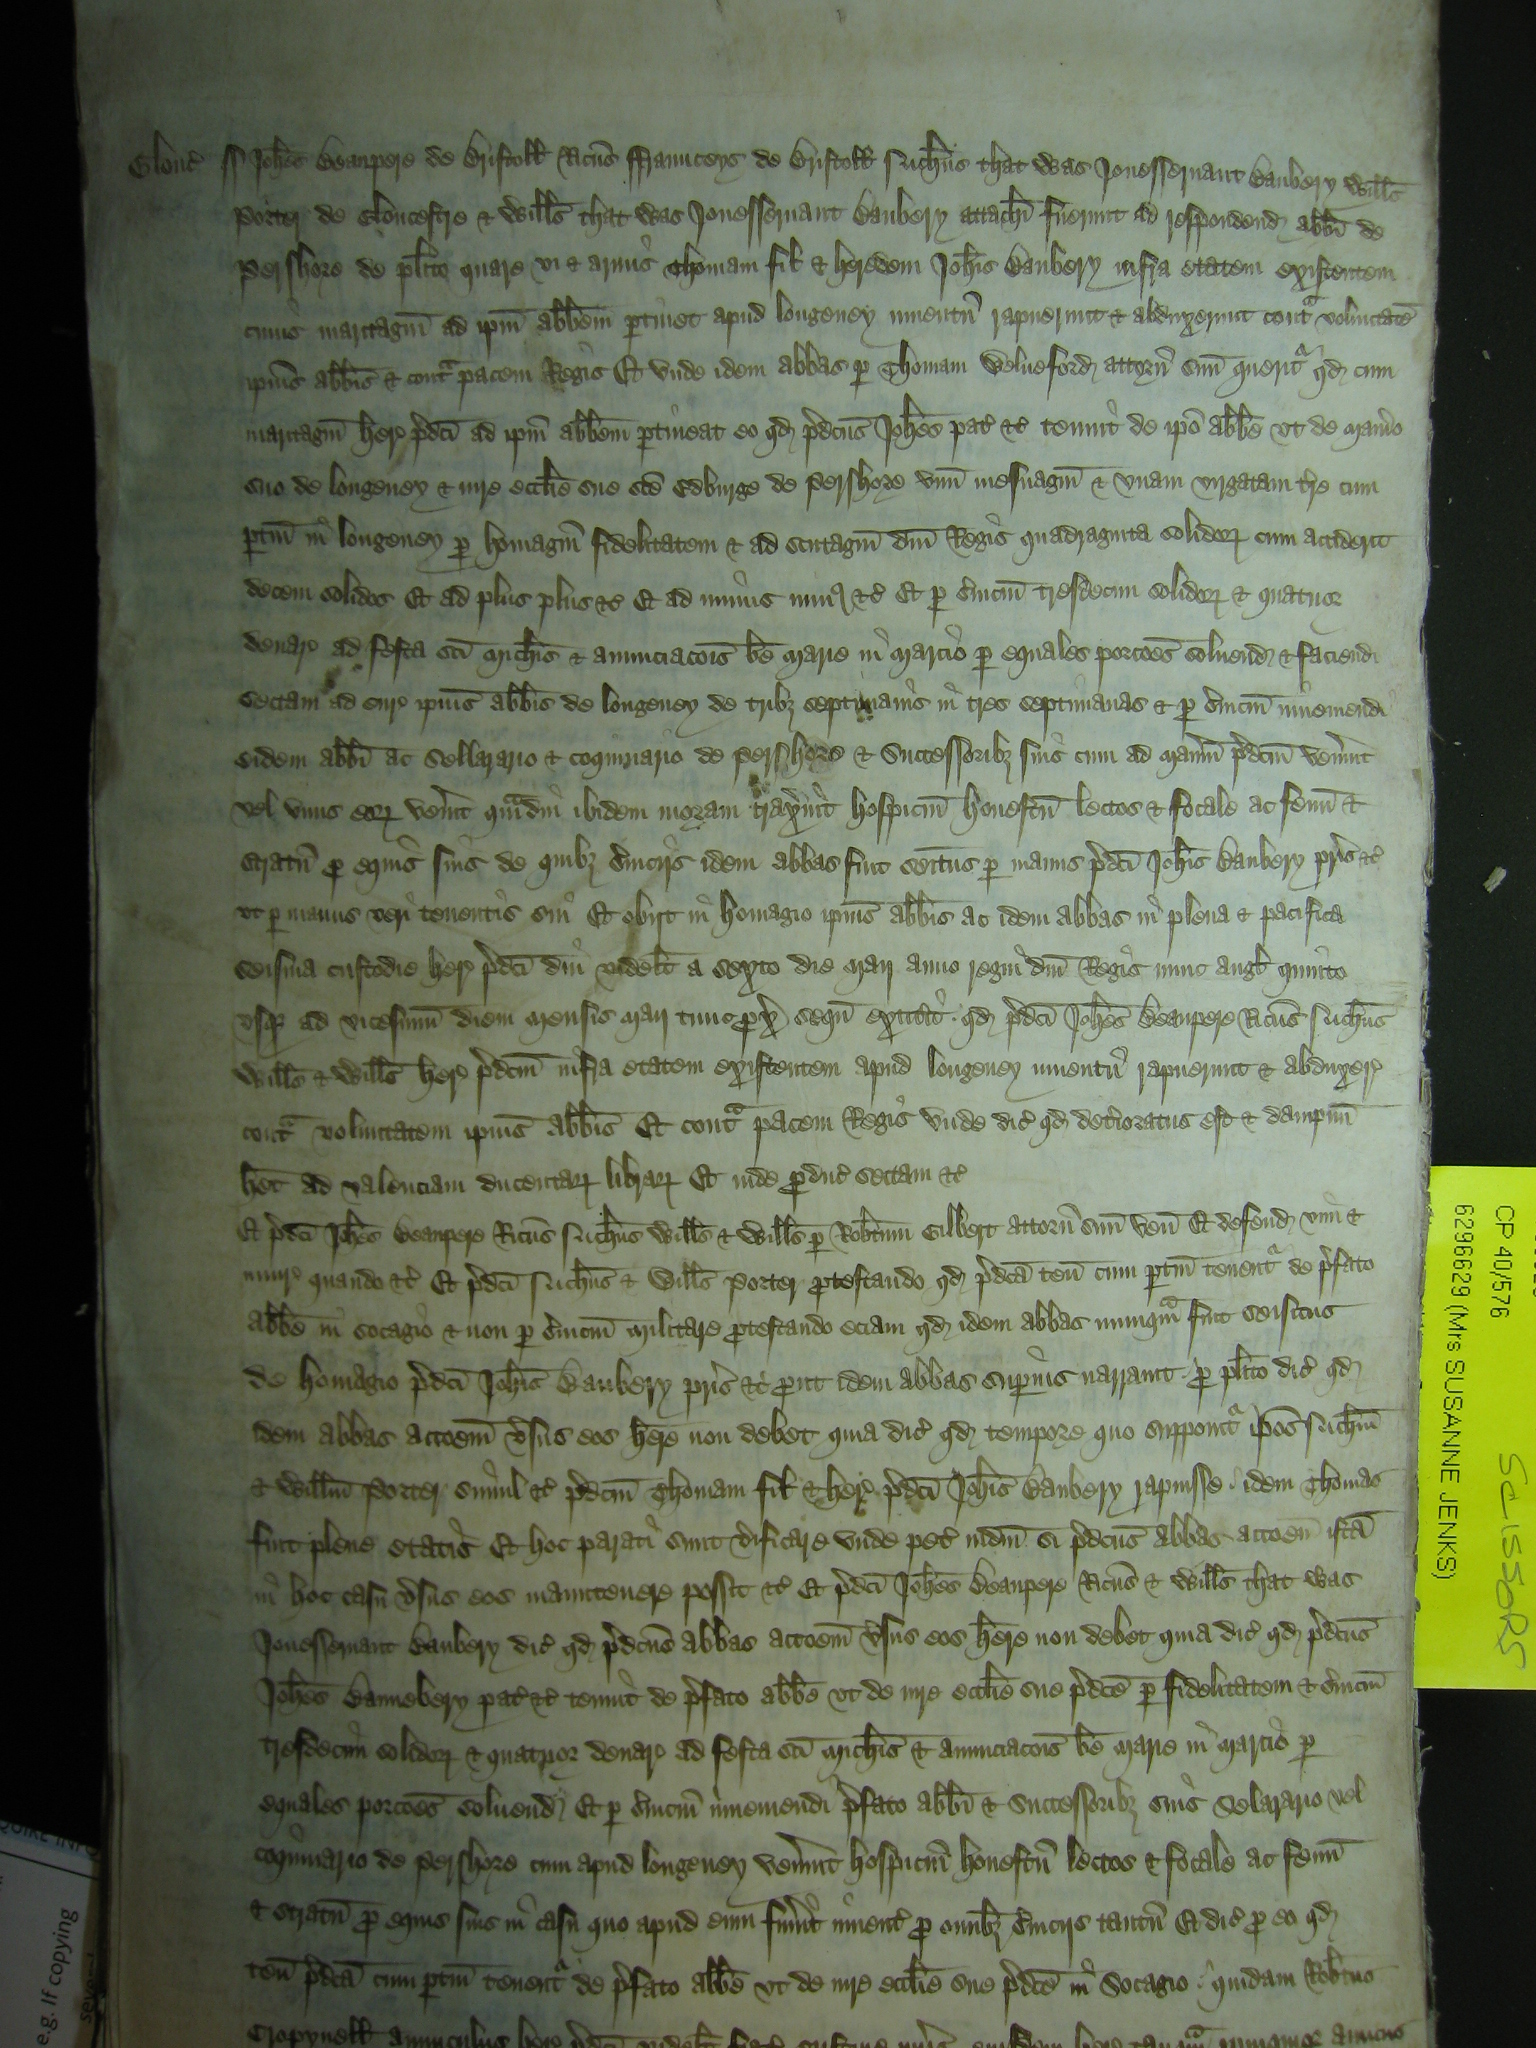 Glouc̃ ss Joh̃es Beaupere de Bristoƚƚ Ric̃us ffraunceys de Bristoƚƚ Mich̃us that was Jonesservant Banbery Wiƚƚs
Porter de Gloucestre & Wiƚƚs that was Jonesservant Banbery attach̃ fuerunt ad respondend̃ abb̃i de
Pershore de pƚito quare vi & armis Thomam fiƚ & heredem Joh̃is Banbery infra etatem existentem
cuius maritagiũ ad ip̃m abb̃em ptinet apud Longeney inuentũ rapuerunt & abduxerunt contᵃ voluntatẽ
ipius abb̃is & contᵃ pacem Regis Et vnde idem abbas p Thomam Welneford attorñ suũ queritᵃ qd̃ cum
maritagiũ her̃ p̃dc̃i ad ip̃m abb̃em ptineat eo qd̃ p̃dc̃us Joh̃es pat̃ &c̃ tenuit de ip̃o abb̃e vt de man̾io
suo de Longeney & iure ecclĩe sue sc̃e Edburge de Pershore vnũ mesuagiũ & vnam virgatam tr̃e cum
ptiñ in Longeney p homagiũ fidelitatem & ad scutagiũ dñi Regis quadraginta solidoꝝ cum acciderit
decem solidos Et ad plus plus &c̃ Et ad minus min9 &c̃ Et p s̃uiciũ tresdecim solidoꝝ & quatuor
denar̃ ad festa sc̃i Mich̃is & annunciac̃ois b̃e Marie in Marcio p equales porc̃oes soluend̃ & faciendi
sectam ad cur̃ ipius abb̃is de Longeney de tribȝ septimanis in tres septimanas & p s̃uiciũ inueniendi
eidem abb̃i ac Sellarario & coquinario de Pershore & Successoribȝ suis cum ad man̾iũ p̃dc̃m ven̾int
vel vnus eoꝝ ven̾it qᵃmdiu ibidem moram trax̾int hospiciũ honestũ lectos & focale ac fenũ &
stratũ p equis suis de quibȝ s̃uiciis idem abbas fuit seitus p manus p̃dc̃i Joh̃is Banbery pr̃is &c̃
vt p manus veri tenentis sui Et obijt in homagio ipius abb̃is ac idem abbas in plena & pacifica
seisina custodie her̃ p̃dc̃i diu videlt̃ a sexto die Maij anno regni dñi Regis nunc Angƚ quinto
vsqȝ ad vicesimũ diem mensis Maij tunc px̃ sequñ extitit qd̃ p̃dc̃i Joh̃es Beaupere Ric̃us Mich̃us
Wiƚƚs & Wiƚƚs her̃ p̃dc̃m infra etatem existentem apud Longeney inuentũ rapuerunt & abduxer̃
contᵃ voluntatem ipius abb̃is Et contᵃ pacem Regis vnde dic̃ qd̃ det̾ioratus est & dampnũ
h̃et ad valenciam ducentaꝝ libraꝝ Et inde pduc̃ sectam &c̃
Et p̃dc̃i Joh̃es Beaupere Ric̃us Mich̃us Wiƚƚs & Wiƚƚs p Rob̃tum Gilbert attorñ suũ veñ Et defend̃ vim &
iniur̃ quando &c̃ Et p̃dc̃i Mich̃us & Wiƚƚs Porter ptestando qd̃ p̃dc̃a teñ cum ptiñ tenentᵃ de p̃fato
abb̃e in socagio & non p s̃uiciũ militare ptestando eciam qd̃ idem abbas nunqᵃm fuit seisitus
de homagio p̃dc̃i Joh̃is Banbery pr̃is &c̃ put idem abbas sup̾ius narrauit p pƚito dic̃ qd̃
idem abbas acc̃oem v̾sus eos h̃ere non debet quia dic̃ qd̃ tempore quo supponitᵃ ip̃os Mich̃m
& Willm̃ Porter simul &c̃ p̃dc̃m Thomam fiƚ & her̃ p̃dc̃i Joh̃is Banbery rapuisse idem Thomas
fuit plene etatis Et hoc parati sunt v̾ificare vnde pet̃ iudiũ si p̃dc̃us abbas acc̃oem istã
in hoc casu v̾sus eos manutenere possit &c̃ Et p̃dc̃i Joh̃es Beaupere Ric̃us & Wiƚƚs that was
Jonesservant Banbery dic̃ qd̃ p̃dc̃us abbas acc̃oem v̾sus eos h̃ere non debet quia dic̃ qd̃ p̃dc̃us
Joh̃es Bannebery pat̃ &c̃ tenuit de p̃fato abb̃e vt de iure ecclĩe sue p̃dc̃e p fidelitatem & s̃uiciũ
tresdecim solidoꝝ & quatuor denar̃ ad festa sc̃i Mich̃is & annunciac̃ois b̃e Marie in Marcio p
equales porc̃oes soluend̃ Et p s̃uiciũ inueniendi p̃fato abb̃i & Successoribȝ suis Selarario vel
coquinario de Pershore cum apud Longeney ven̾int hospiciũ honestũ lectos & focale ac fenũ
& stratũ p equis suis in casu quo apud eum fu̾int inuent̃ p omĩbȝ s̃uiciis tantũ Et dic̃ p eo qd̃
teñ p̃dc̃a cum ptiñ tenentᵃ de p̃fato abb̃e vt de iure ecclĩe sue p̃dc̃e in Socagio quidam Rob̃tus
Cropyneƚƚ auunculus her̃ p̃dc̃i
CP 40/576
6296629 (Mrs SUSANNE JENKS)
SCISSORS
e.g. If copying